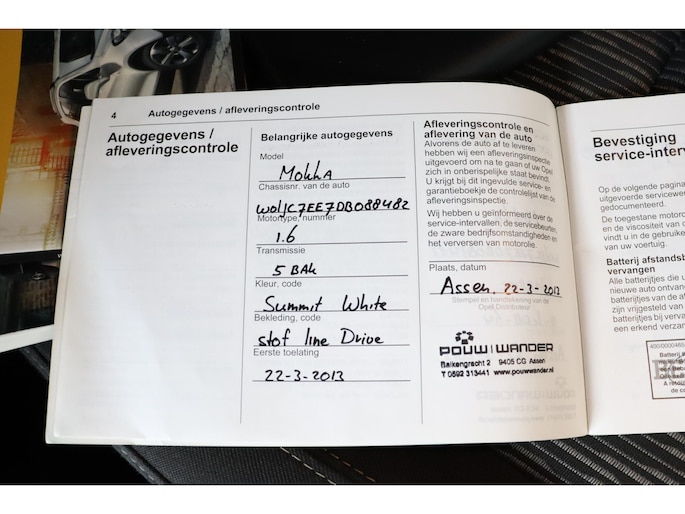 4 Autogegevens / afleveringscontrole
Autogegevens /
afleveringscontrole
Belangrijke autogegevens
Model
Mokka
Chassisnr. van de auto
WOLJC7EE7DB088482
Motortype, nummer
1.6
Transmissie
5 BAK
Kleur, code
Summit White
Bekleding, code
stof line Drive
Eerste toelating
22-3-2013
Afleveringscontrole en
aflevering van de auto
Alvorens de auto af te leveren
hebben wij een afleveringsinspectie
uitgevoerd om na te gaan of uw Opel
zich in onberispelijke staat bevindt.
U krijgt bij dit ingevulde service- en
garantieboekje de controlelijst van de
afleveringsinspectie.
Wij hebben u geïnformeerd over de
service-intervallen, de servicebeurten,
de zware bedrijfsomstandigheden en
het verversen van motorolie.
Plaats, datum
Assen, 22-3-2013
Stempel en handtekening van de
Opel Distributeur
POUW WANDER
Balkengracht 2 9405 CG Assen
T 0592 313441 www.pouwwander.nl
Bevestiging
service-inter
Op de volgende pagina
uitgevoerde servicewer
gedocumenteerd.
De toegestane motoro
en de viscositeit van c
vindt u in de gebruike
van uw voertuig.
Batterij afstandsb
vervangen
Alle batterijtjes die u
nieuwe auto ontvang
batterijtjes van de af
zijn vrijgesteld van
batterijtjes bij vervan
een erkend verzam